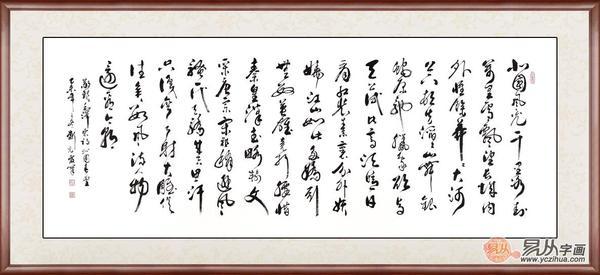 北国风光千里冰封
万里雪飘望长城内
外惟余莽莽大河
上下顿失滔滔山舞银
蛇原驰蜡象欲与
天公试比高须晴日
看红装素裹分外妖
娆江山如此多娇引
无数英雄竞折腰惜
秦皇汉武略输文
采唐宗宋祖稍逊风
骚一代天骄成吉思汗
只识弯弓射大雕俱
往矣数风流人物
还看今朝
易从字画
www.yczihua.com